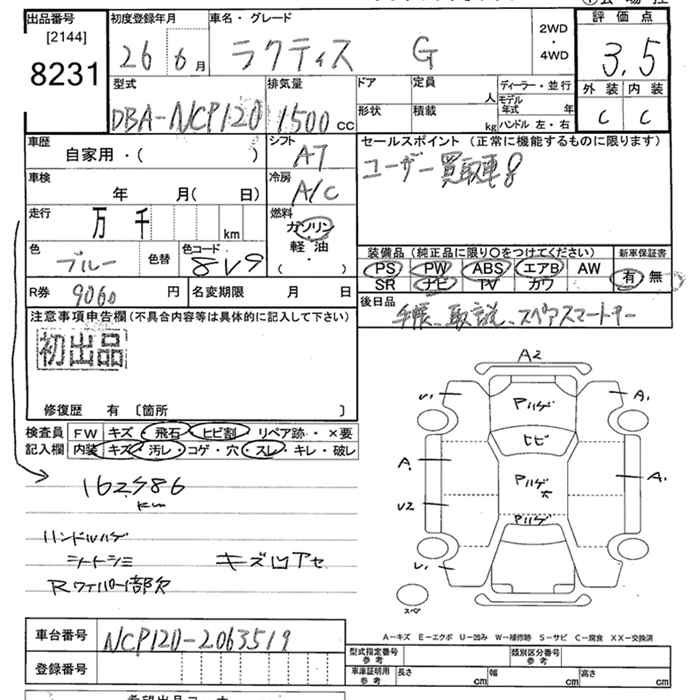 出品番号 初度登録年月 車名・グレード 評価点
[2144] 8231
26 6月 ラクティス G 2WD・4WD 3.5
型式 排気量 ドア 定員 人 ディーラー・並行 外装 内装
DBA-NCP120 1500cc 形状 積載 kg モデル年式 年 ハンドル 左・右 C C
車歴 シフト セールスポイント(正常に機能するものに限ります)
自家用・( ) AT ユーザー買取車
車検 冷房
年 月( 日) A/C
走行 燃料
万 千 km ガソリン
軽・油
色 色替 色コード ・( ) 装備品(純正品に限り〇をつけてください) 新車保証書
ブルー 8V9 PS PW ABS エアB AW 有・無
SR ナビ TV カワ
R券 9060 円 名変期限 月 日 後日品
注意事項申告欄(不具合内容等は具体的に記入して下さい) 手帳、取説、スペアスマートキー
初出品
修復歴 有 〔箇所 〕
検査員 FW キズ・飛石・ヒビ割・リペア跡・×要
記入欄 内装 キズ・汚レ・コゲ・穴・スレ・キレ・破レ
162986
km
ハンドルハゲ
シートシミ キズ凹アセ
Rワイパー1部欠
A2
U1 Pハゲ A1
ヒビ
A1 Pハゲ大 A1
U2 Pハゲ
U1
スペア
A-キズ E-エクボ U-凹み W-補修跡 S-サビ C-腐食 XX-交換済
車台番号 NCP120-2063519
登録番号
型式指定番号 参考 類別区分番号 参考
車庫証明用 参考 長さ cm 幅 cm 高さ cm